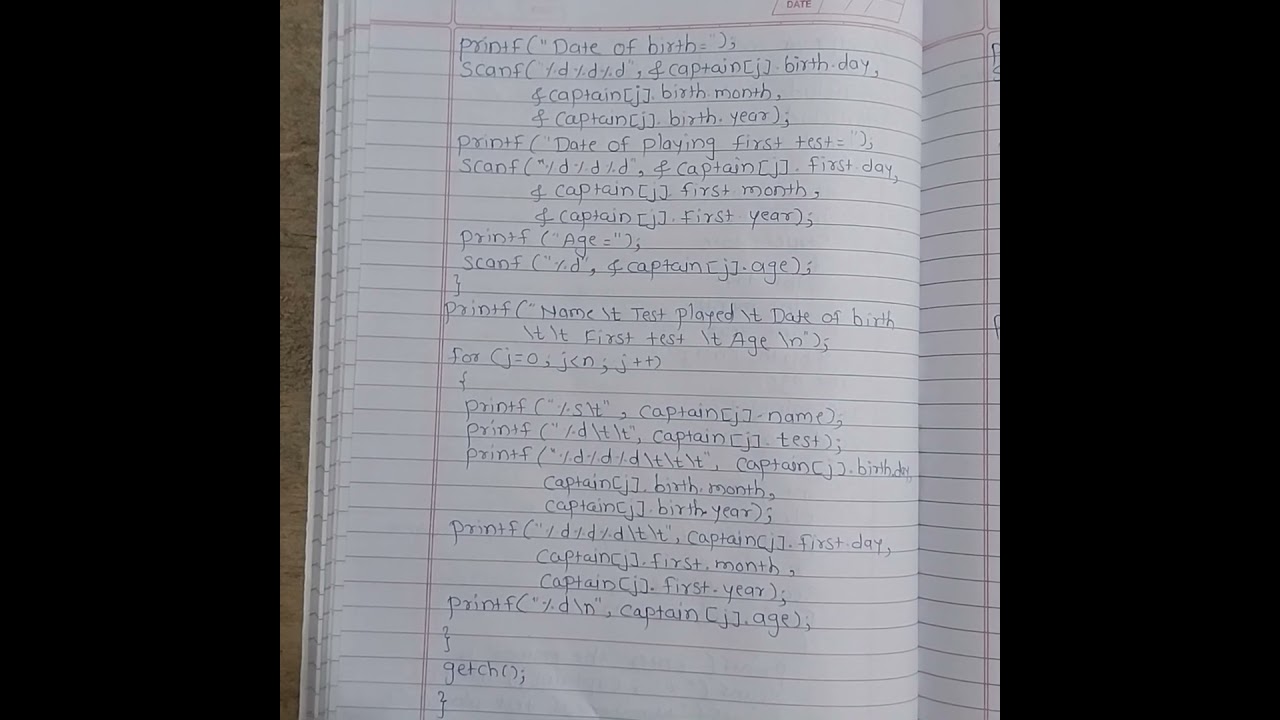 DATE
printf("Date of birth=");
scanf("%d%d%d", &captain[j].birth.day,
&captain[j].birth.month,
&captain[j].birth.year);
printf("Date of playing first test=");
scanf("%d%d%d", &captain[j].first.day,
&captain[j].first month,
&captain[j].first year);
printf("Age=");
scanf("%d", &captain[j].age);
}
printf("Name\t Test played\t Date of birth
\t\t First test \t Age \n");
for (j=0; j<n; j++)
{
printf("%s\t", captain[j].name);
printf("%d\t\t", captain[j].test);
printf("%d%d%d\t\t\t", captain[j].birth.day,
captain[j].birth.month,
captain[j].birth.year);
printf("%d%d%d\t\t", captain[j].first.day,
captain[j].first.month,
captain[j].first.year);
printf("%d\n", captain[j].age);
}
getch();
}